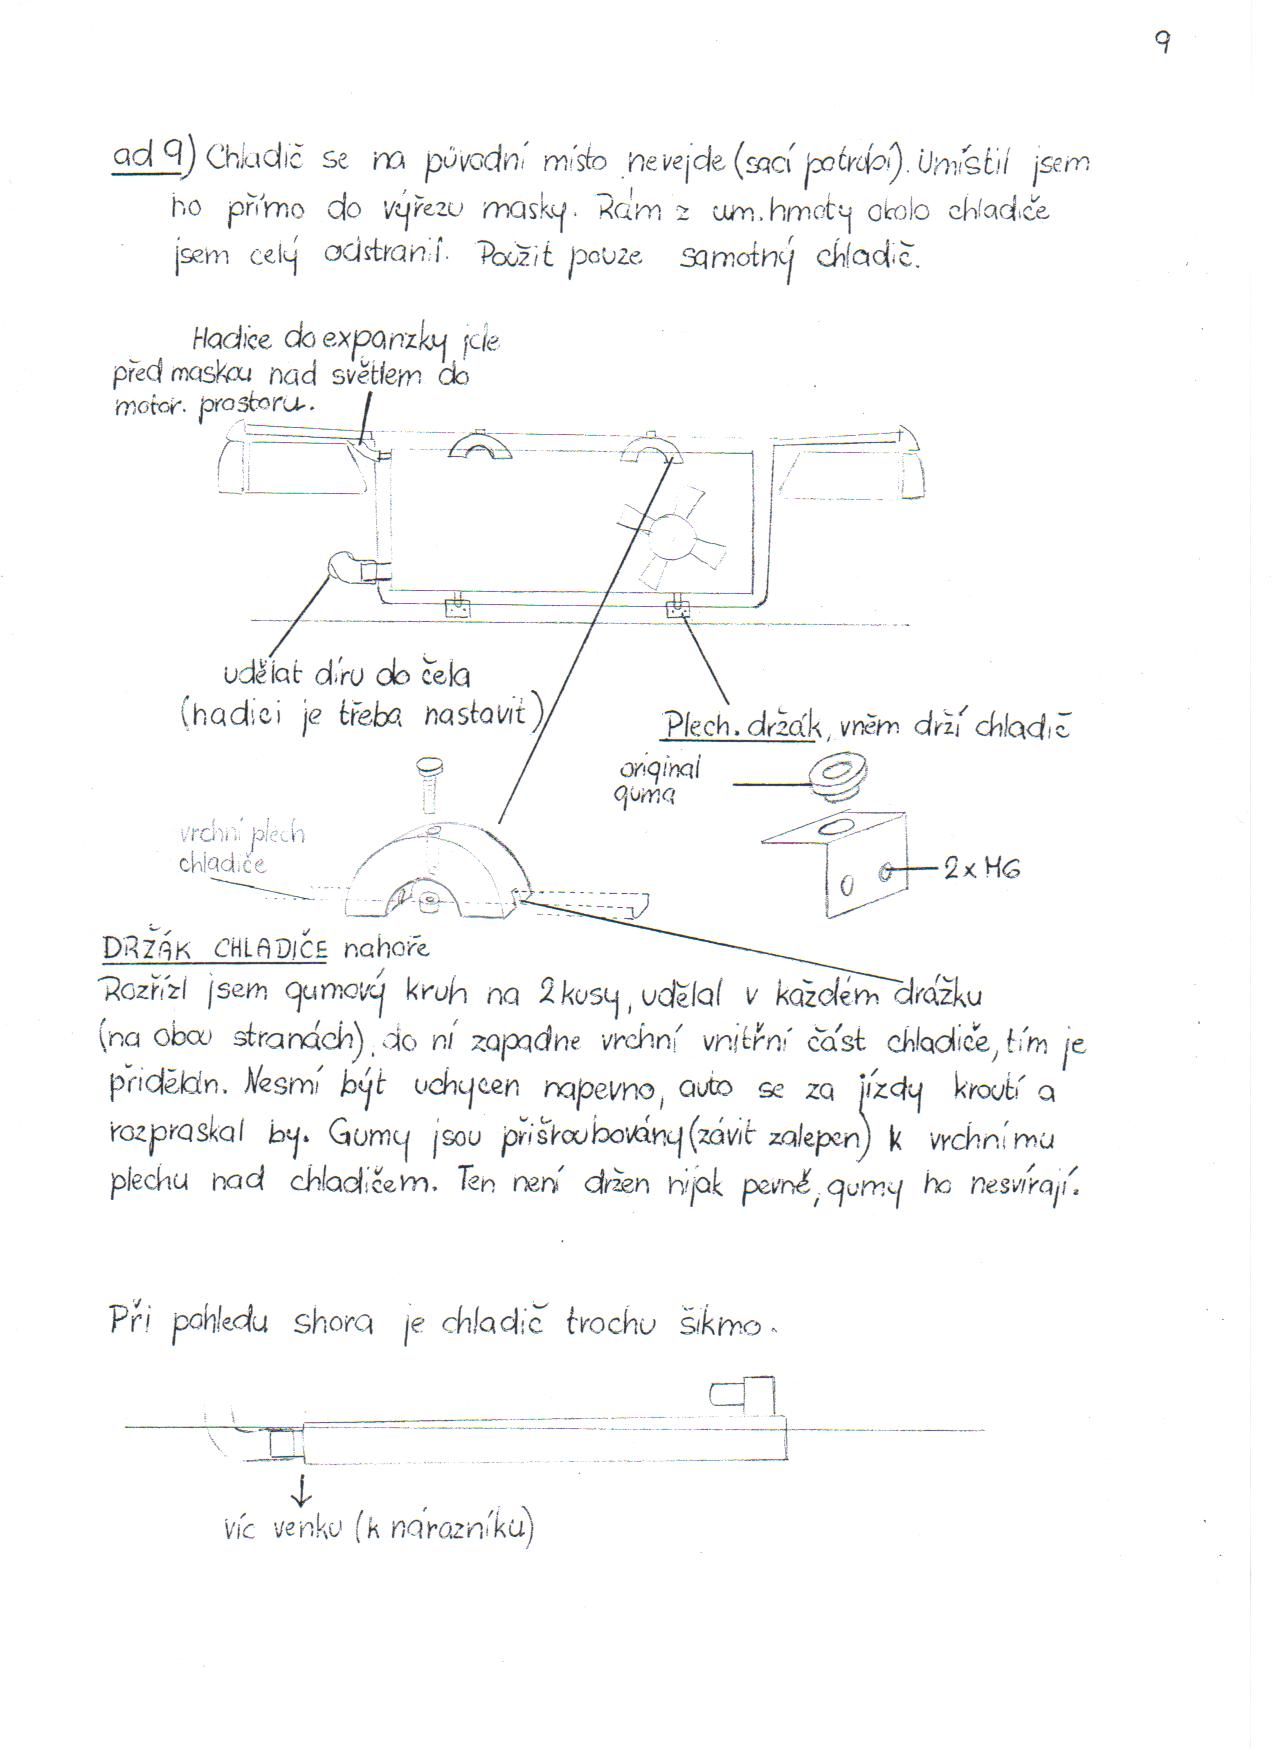 9
ad 9) Chladič se na původní místo nevejde (sací potrubí). Umístil jsem
ho přímo do výřezu masky. Rám z um. hmoty okolo chladiče
jsem celý odstranil. Použit pouze samotný chladič.
Hadice do expanzky jde
před maskou nad světlem do
motor. prostoru.
udělat díru do čela
(hadici je třeba nastavit)
Plech. držák, vněm drží chladič
original
guma
vrchní plech
chladiče
2x M6
DRŽÁK CHLADIČE nahoře
Rozřízl jsem gumový kruh na 2 kusy, udělal v každém drážku
(na obou stranách), do ní zapadne vrchní vnitřní část chladiče, tím je
přidělán. Nesmí být uchycen napevno, auto se za jízdy kroutí a
rozpraskal by. Gumy jsou přišroubovány (závit zalepen) k vrchnímu
plechu nad chladičem. Ten není držen nijak pevně, gumy ho nesvírají.
Při pohledu shora je chladič trochu šikmo.
víc venku (k nárazníku)